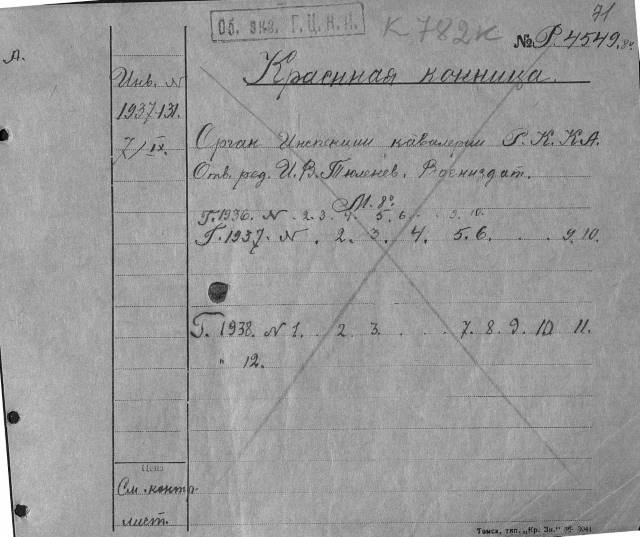 71
Об. экз. Г.Ц.К.П.
К 782к
№ Р.4549.
А.
Красная конница.
Инв. N
1937-131.
7/IX.
Орган Инспекции кавалерии Р.К.К.А.
Отв. ред. И.В. Тюленев. Воениздат.
М. 8°
Г. 1936. N . 2. 3. 4. 5. 6. . . 9. 10.
Г. 1937. N . 2. 3. 4. 5. 6. . . 9. 10.
Г. 1938. N 1. . 2. 3. . . . 7. 8. 9. 10 11.
" 12.
Цена
См. конто
лист.
Томск, тип. „Кр. Зн."